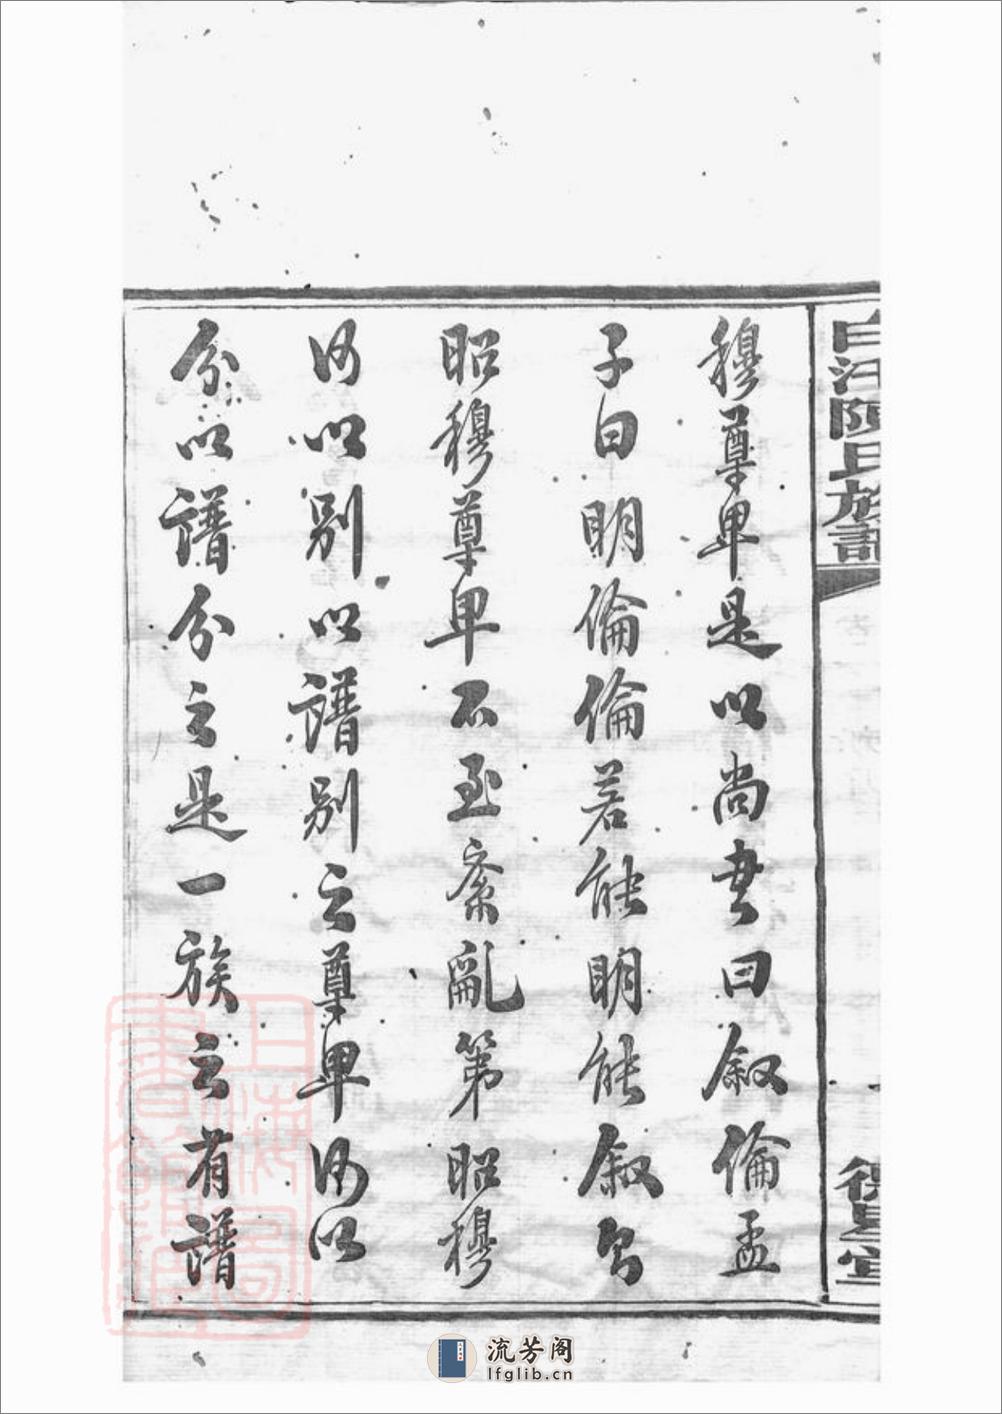 白汪陳氏族譜
一
穆尊卑是以尚書曰叙倫孟
子曰明倫倫若能明能叙則
昭穆尊卑不至紊亂第昭穆
何以别以譜别之尊卑何以
分以譜分之是一族之有譜
上海圖書館藏
流芳阁
lfglib.cn